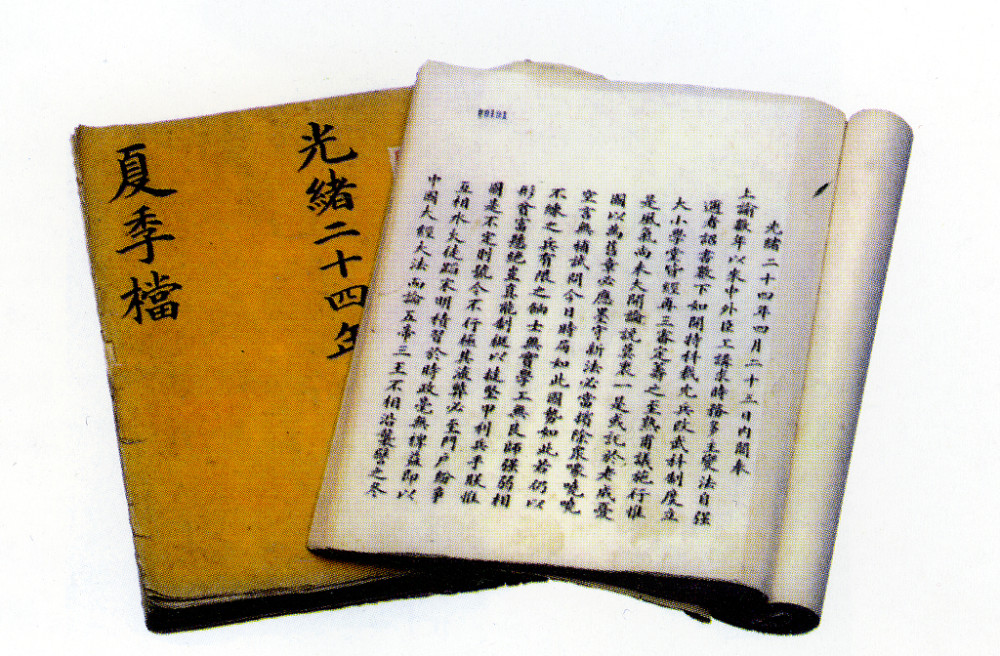 光緒二十四年四月二十三日內閣奉
上諭數年以來中外臣工講求時務多主變法自強
邇者詔書數下如開特科裁冗兵改武科制度立
大小學堂皆經再三審定籌之至熟甫議施行惟
是風氣尚未大開論說莫衷一是或託於老成憂
國以為舊章必應墨守新法必當擯除眾喙嘵嘵
空言無補試問今日時局如此國勢如此若仍以
不練之兵有限之餉士無實學工無良師強弱相
形貧富懸絕豈真能制梃以撻堅甲利兵乎朕惟
國是不定則號令不行極其流弊必至門戶紛爭
互相水火徒蹈宋明積習於時政毫無裨益即以
中國大經大法而論五帝三王不相沿襲譬之冬
光緒二十四年
夏季檔